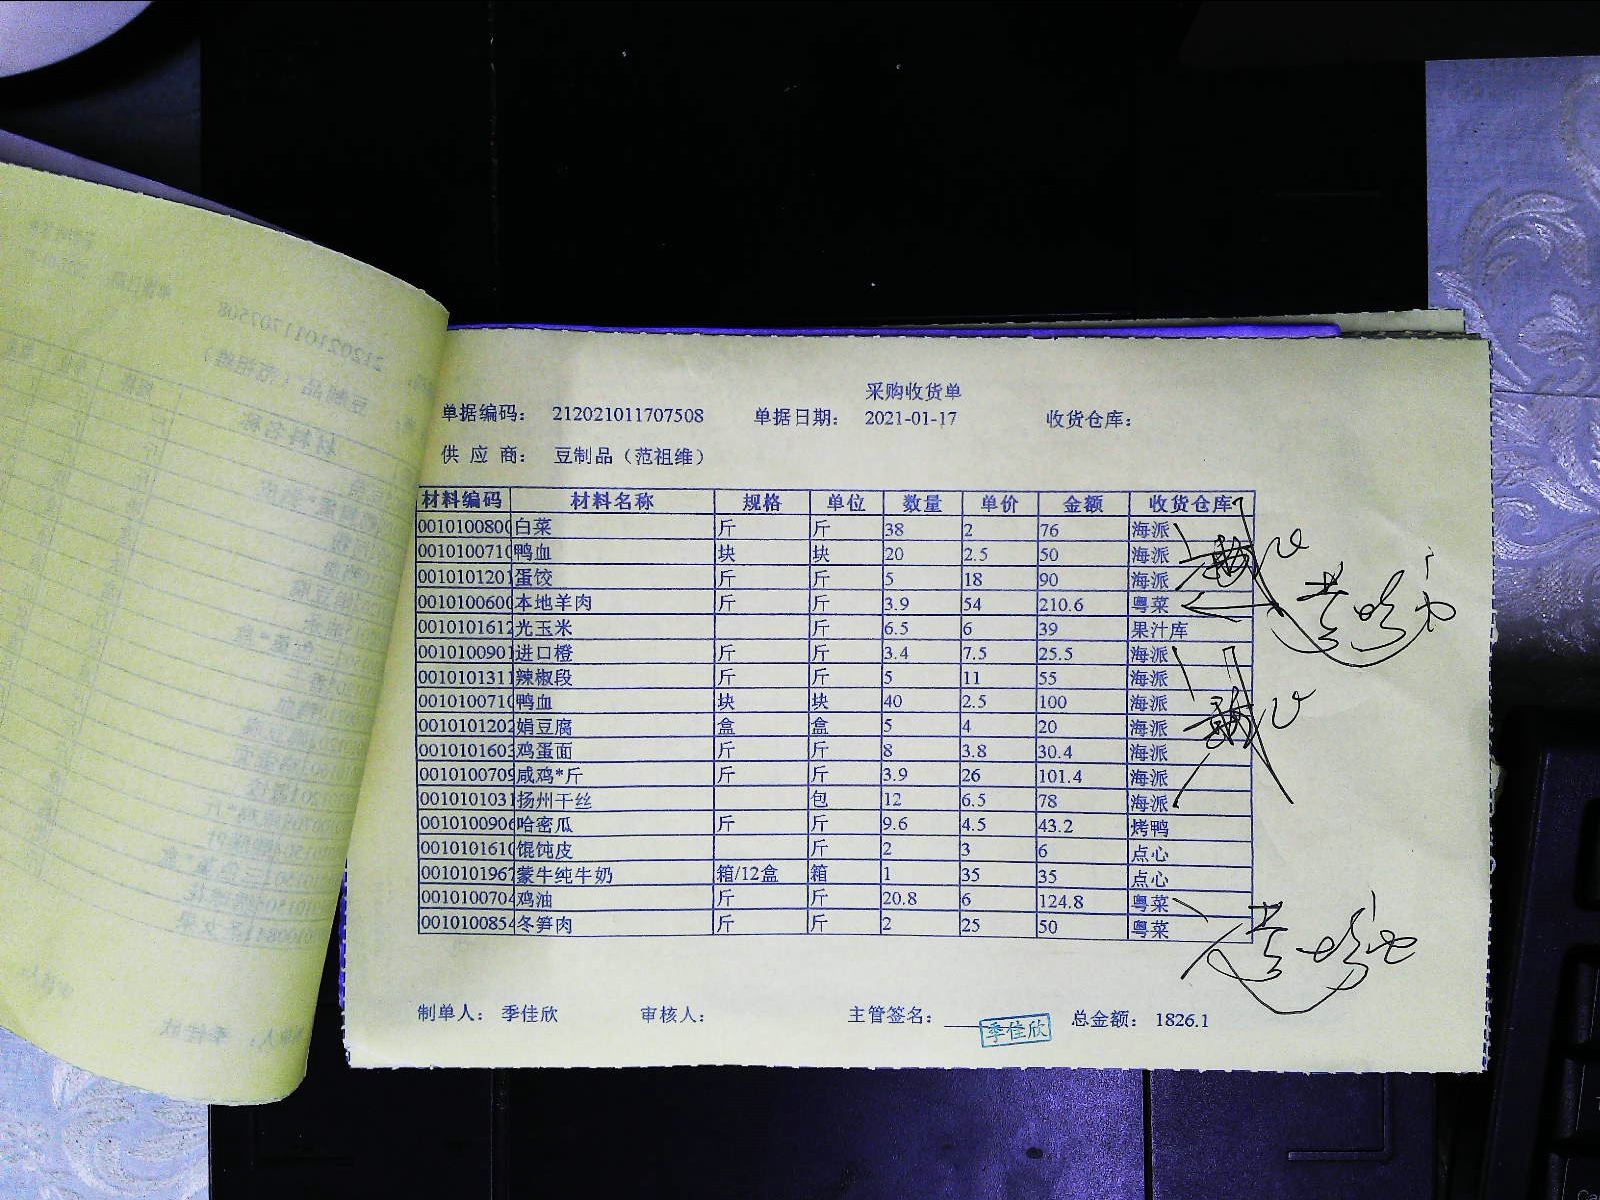 采购收货单
单据编码： 212021011707508 单据日期： 2021-01-17 收货仓库：
供 应 商： 豆制品（范祖维）
材料编码 材料名称 规格 单位 数量 单价 金额 收货仓库
0010100800 白菜 斤 斤 38 2 76 海派
0010100710 鸭血 块 块 20 2.5 50 海派
0010101201 蛋饺 斤 斤 5 18 90 海派
0010100600 本地羊肉 斤 斤 3.9 54 210.6 粤菜
0010101612 光玉米 斤 6.5 6 39 果汁库
0010100901 进口橙 斤 斤 3.4 7.5 25.5 海派
0010101311 辣椒段 斤 斤 5 11 55 海派
0010100710 鸭血 块 块 40 2.5 100 海派
0010101202 娟豆腐 盒 盒 5 4 20 海派
0010101603 鸡蛋面 斤 斤 8 3.8 30.4 海派
0010100709 咸鸡*斤 斤 斤 3.9 26 101.4 海派
0010101031 扬州干丝 包 12 6.5 78 海派
0010100906 哈密瓜 斤 斤 9.6 4.5 43.2 烤鸭
0010101610 馄饨皮 斤 2 3 6 点心
0010101967 蒙牛纯牛奶 箱/12盒 箱 1 35 35 点心
0010100704 鸡油 斤 斤 20.8 6 124.8 粤菜
0010100854 冬笋肉 斤 斤 2 25 50 粤菜
制单人： 季佳欣 审核人： 主管签名： 季佳欣 总金额： 1826.1